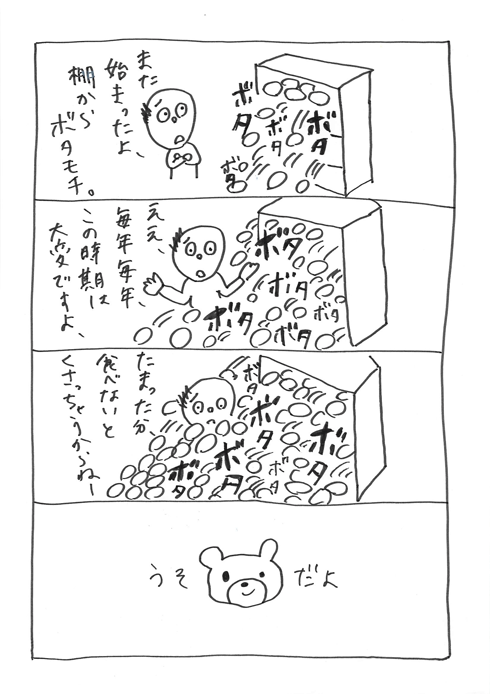 また
始まったよ、
棚から
ボタモチ。
ボタ
ボタ
ボタ
ボタ
ええ、
毎年毎年
この時期は
大変ですよ、
ボタ
ボタ
ボタ
ボタ
ボタ
たまった分
食べないと
くさっちゃうからねー
ボタ
ボタ
ボタ
ボタ
ボタ
ボタ
うそ
だよ